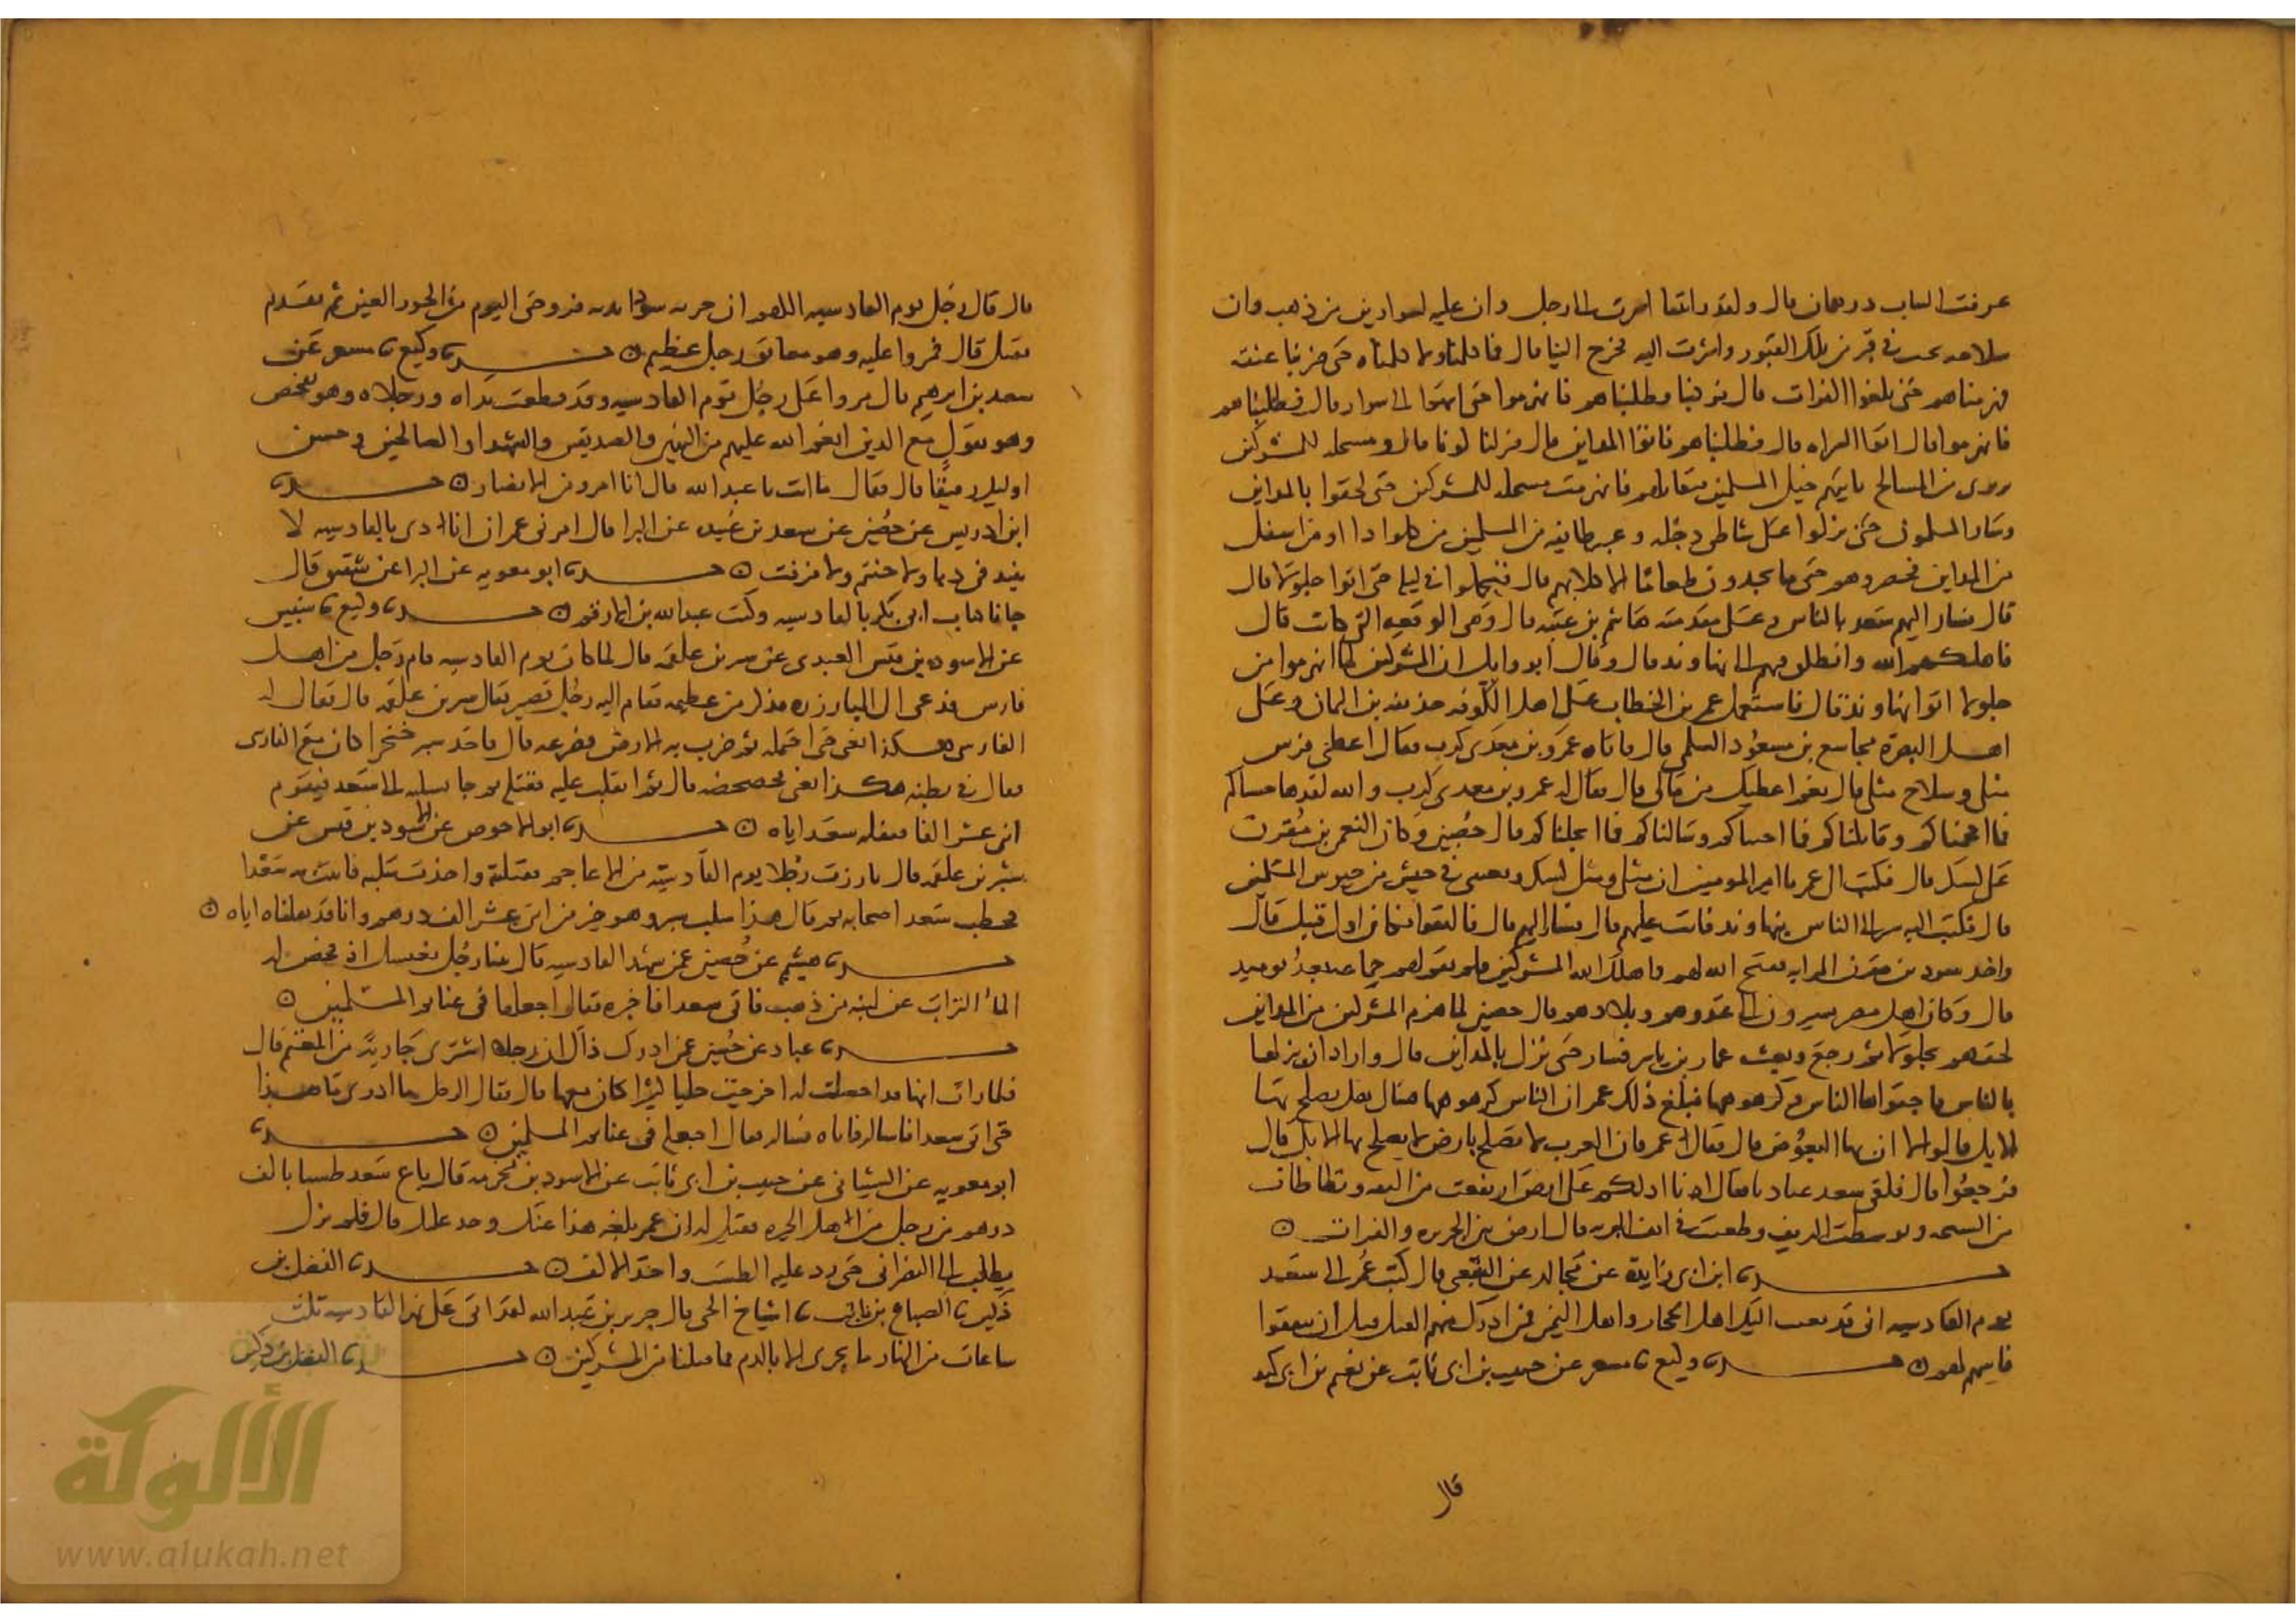 عرفت الساب درىعان قال ولقد راىتها اشرت الى رجل وان عليه لسوارين من ذهب وان
سلاحه تحت في قبر من تلك القبور واشرت اليه فخرج الينا قال فما كلمنا ولا كلمناه حتى ضربنا عنقه
فهزمناهم حتى بلغوا الفرات قال فركبنا فطلبناهم فانهزموا حتى انتهوا الى سوار قال فطلبناهم
فانهزموا قال اتوا الصراه قال فطلبناهم فاتوا المداين قال فنزلنا كوثا قال ومسلحه للمشركين
بديرى من المسالح تاتيهم خيل المسلمين فتقاتلهم فانهزمت مسلحه للمشركين حتى لحقوا بالمداين
وسار المسلمون حتى نزلوا على شاطى دجله وعبر طايفه من المسلمين من كلواذا او من اسفل
من المداين فحصروهم حتى ما يجدون طعاما الا كلابهم قال فتحملوا في ليله حتى اتوا جلولا قال
قال فسار اليهم سعد بالناس وعلى مقدمته هاشم بن عتبه قال وهي الوقعه التي كانت قال
فاهلكهم الله وانطلق بهم الى نهاوند قال وقال ابو وايل ان المشركين لما انهزموا من
جلولا اتوا نهاوند قال فاستعمل عمر بن الخطاب على اهل الكوفه حذيفه بن اليمان وعلى
اهل البصرة مجاشع بن مسعود السلمي قال فاتاه عمرو بن معدي كرب فقال اعطني فرس
مثلي وسلاح مثلي قال نعم اعطيك من مالي قال فقال له عمرو بن معدي كرب والله لقد هاجيناكم
فما افحمناكم وقاتلناكم فما اجبناكم وسالناكم فما ابخلناكم قال حصين وكان النعمن بن مقرن
على كسكر قال فكتب الى عمر يا امير المومنين ان مثلي ومثل كسكر وبعثني في جيش من جيوش المسلمين
قال فكتب اليه سر الى الناس بنهاوند فانت عليهم قال فسار اليهم قال فالتقوا فكان اول قتيل قال
واخذ سويد بن مقرن الرايه ففتح الله لهم واهلك الله المشركين فلم تقم لهم جماعه بعد يوميذ
قال وكان اهل مصر يسيرون الى عدوهم وبلادهم قال حصين لما هزم المشركين من المداين
لحقهم بجلولا ثم رجع وبعث عمار بن ياسر فسار حتى نزل بالمداين قال واراد ان ينزلها
بالناس فاجتواها الناس وكرهوها فبلغ ذلك عمر ان الناس كرهوها فسال هل يصلح بها
الابل قالوا لا ان بها البعوض قال فقال عمر فان العرب لا تصلح بارض لا يصلح بها الابل قال
فرجعوا قال فلقي سعد عباديا فقال انا ادلكم على ارض ارتفعت من البقه وتطاطات
من السبخه وتوسطت الريف وطعنت في انف البريه قال ارض بين الحيره والفرات ن
حدثنا ابن ابي زايدة عن مجالد عن الشعبي قال كتب عمر الى سعد
يوم القادسيه اني قد بعثت اليك اهل الحجاز واهل اليمن فمن ادرك منهم القتال قبل ان يتفقوا
فاسهم لهم ن حدثنا وكيع نا مسعر عن حبيب بن ابي ثابت عن نعيم بن ابي هند
قال
قال قال رجل يوم القادسيه اللهم ان حدبه سودا بديه فزوجني اليوم من الحور العين ثم تقدم
فقتل قال فمروا عليه وهو معانق رجل عظيم ن حدثنا وكيع نا مسعر عن
سعد بن ابرهيم قال مروا على رجل يوم القادسيه وقد قطعت يداه ورجلاه وهو يفحص
وهو يقول مع الذين انعم الله عليهم من النبيين والصديقين والشهدا والصالحين وحسن
اوليك رفيقا قال فقال ما انت يا عبد الله قال انا امرو من الانصار ن حدثنا
ابن ادريس عن حصين عن سعد بن عبيده عن البرا قال امرني عمر ان انادي بالقادسيه لا
ينبذ في دبا ولا حنتم ولا مزفت ن حدثنا ابو معويه عن البرا عن شقيق قال
جانا كتاب ابي بكر بالقادسيه وكتب عبدالله بن الارقم ن حدثنا وكيع نا سفين
عن الاسود بن قيس العبدي عن شبر بن علقمه قال لما كان يوم القادسيه قام رجل من اهل
فارس فدعى الى المبارزه فذكر من عظمه فقام اليه رجل قصير يقال شبر بن علقمه قال فقال له
الفارسي هكذا يعني حتى احتمله ثم ضرب به الارض فصرعه قال فاخذ شبر خنجرا كان مع الفارسي
فقال في بطنه هكذا يعني فحصحصه قال ثم انقلب عليه فقتله ثم جا بسلبه الى سعد فيقوم
اثني عشر الفا فنفله سعد اياه ن حدثنا ابو الاحوص عن الاسود بن قيس عن
شبر بن علقمه قال بارزت رجلا يوم القادسيه من الاعاجم فقتلته واخذت سلبه فاتيت به سعدا
فخطب سعد اصحابه ثم قال هذا سلب شبر وهو خير من اثني عشر الف درهم وانا قد نفلناه اياه ن
حدثنا هشيم عن حصين عمن شهد القادسيه قال بينا رجل يغتسل اذ فحص له
الما التراب عن لبنه من ذهب فاتى سعدا فاخبره فقال اجعلها في غنايم المسلمين ن
حدثنا عباد عن حصين عمن ادرك ذاك ان رجلا اشترى جارية من المغنم قال
فلما رات انها قد اخلصت له اخرجت حليا كثيرا كان معها قال فقال الرجل ما ادري ما هذا
حتى اتى سعدا فاساله فاتاه فساله فقال اجعله في غنايم المسلمين ن حدثنا
ابو معويه عن الشيباني عن حبيب بن ابي ثابت عن الاسود بن مخرمه قال باع سعد طستا بالف
درهم من رجل من اهل الحيره فقيل له ان عمر بلغه هذا عنك فوجد عليك قال فلم يزل
يطلب الى النصراني حتى رد عليه الطست واخذ الالف ن حدثنا الفضل بن
دكين نا الصباح بن ثابت نا اشياخ الحي قال جرير بن عبدالله لقد اتى على نهر القادسيه ثلث
ساعات من النهار ما يجري الا بالدم مما قتلنا من المشركين ن حدثنا الفضل بن دكين
شبكة
الألوكة
www.alukah.net